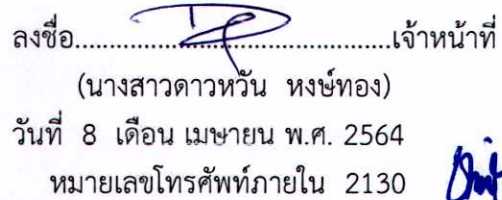 ลงชื่อ........................................เจ้าหน้าที่
(นางสาวดาวหวัน หงษ์ทอง)
วันที่ 8 เดือน เมษายน พ.ศ. 2564
หมายเลขโทรศัพท์ภายใน 2130